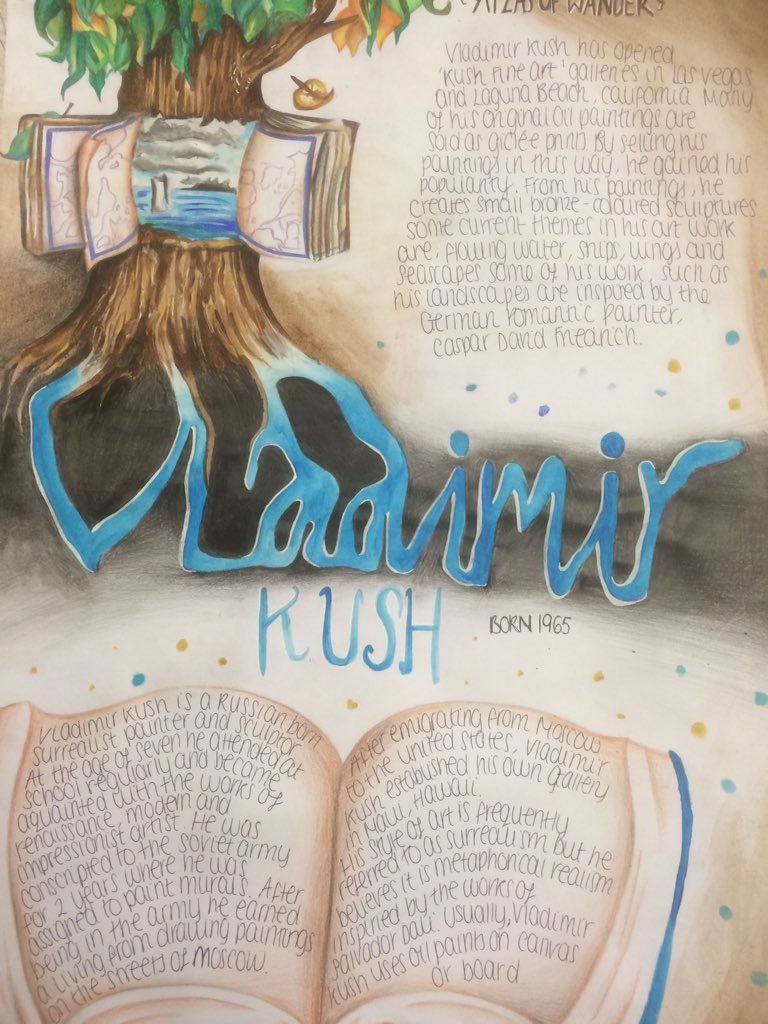 "ATLAS OF WANDER"
Vladimir Kush has opened
'Kush Fine Art' galleries in Las Vegas
and Laguna Beach, California. Many
of his original oil paintings are
sold as giclée prints. By selling his
paintings in this way, he gained his
popularity. From his paintings, he
creates small bronze-coloured sculptures
some current themes in his art work
are, flowing water, ships, wings and
seascapes some of his work, such as
his landscapes are inspired by the
German romantic painter,
Caspar David Friedrich.
Vladimir
KUSH
BORN 1965
Vladimir Kush is a Russian born
surrealist painter and sculptor
At the age of seven he attended art
school regularly and became
aquainted with the works of
renaissance, modern and
impressionist artist. He was
conscripted to the soviet army
for 2 years where he was
assigned to paint murals. After
being in the army he earned
a living from drawing paintings
on the streets of Moscow.
After emigrating from Moscow
to the united states, Vladimir
Kush established his own gallery
in Maui, Hawaii.
His style of art is frequently
referred to as surrealism but he
believes it is metaphorical realism
inspired by the works of
Salvador Dali. Usually, Vladimir
Kush uses oil paints on canvas
or board